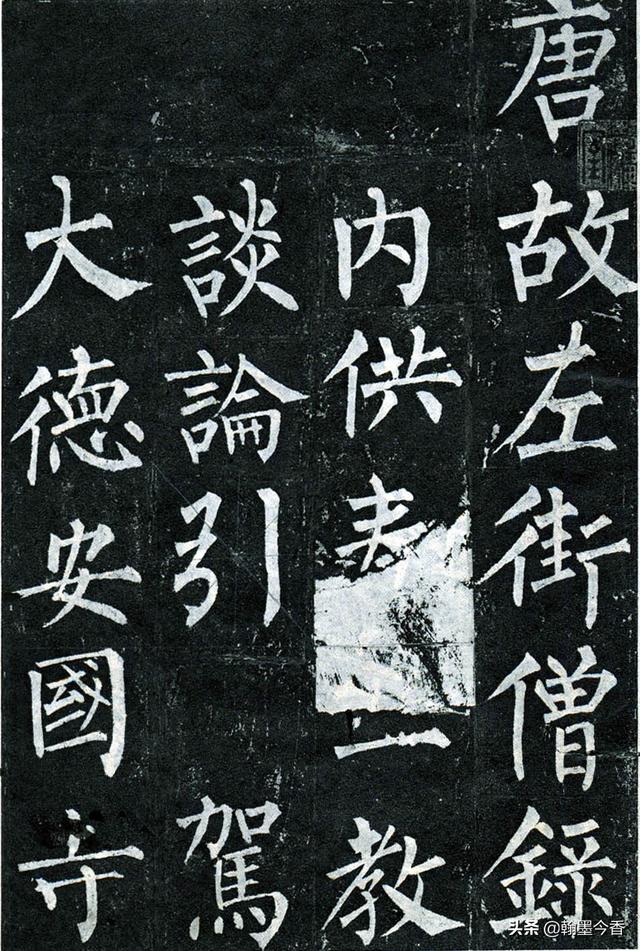 唐故左街僧錄
内供奉三教
談論引駕
大德安國寺
头条 @翰墨今香